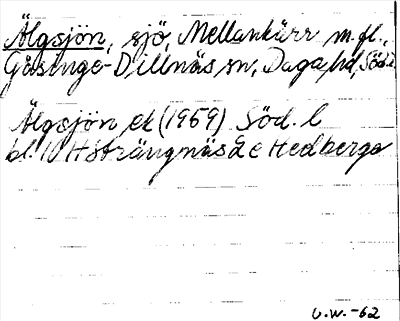 Älgsjön, sjö, Mellankärr m.fl.,
Gåsinge-Dillnäs sn, Daga hd, Söd.
Älgsjön ek (1959) Söd. l
bl. 10 H Strängnäs e Hedberga
U.W.-62